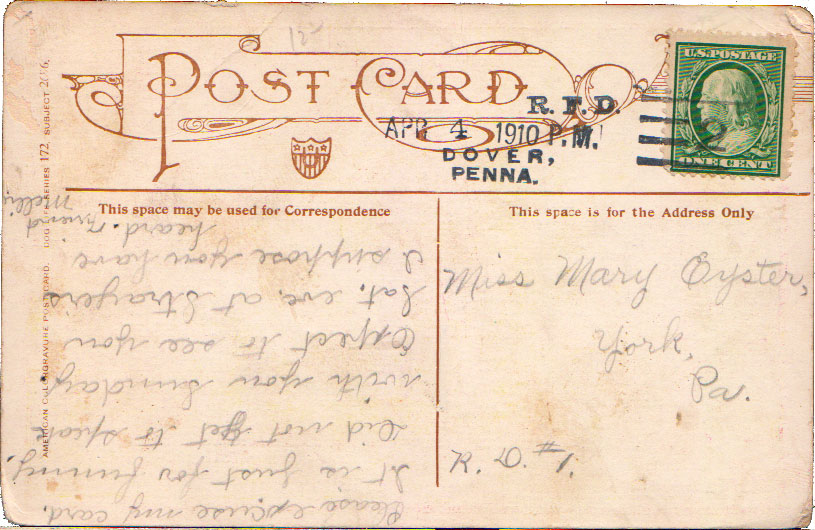 POST CARD
U.S. POSTAGE
ONE CENT
2
R.F.D.
APR 4 1910 P.M.
DOVER,
PENNA.
This space may be used for Correspondence
This space is for the Address Only
Miss Mary Oyster,
York,
Pa.
R. D. #1.
Please excuse my card.
It is just for funning.
Did not get to speak
with you Sunday
Expect to see you
Sat. eve. at Strayer's
I suppose you have
heard.
Friend
AMERICAN COLORGRAVURE POSTCARD. SERIES 172, SUBJECT